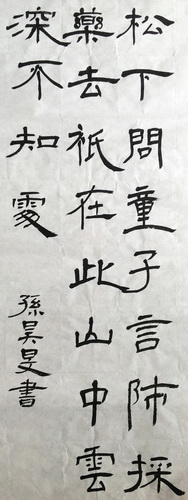 松下問童子言師採
藥去祇在此山中雲
深不知處
孫昊旻書